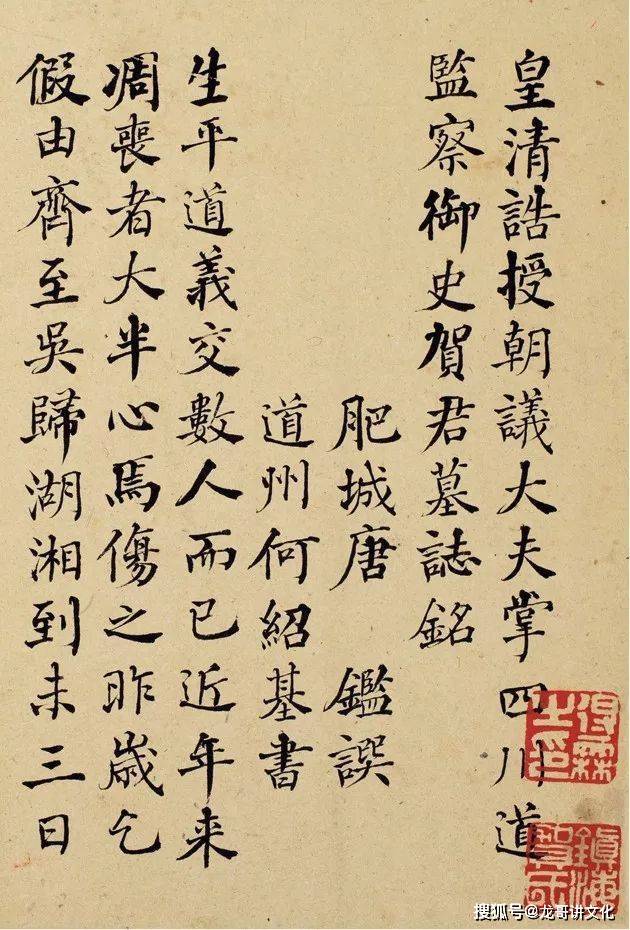 皇清誥授朝議大夫掌四川道
監察御史賀君墓誌銘
肥城唐 鑑譔
道州何紹基書
生平道義交數人而已近年来
凋喪者大半心焉傷之昨歲乞
假由齊至吳歸湖湘到未三日
搜狐号@龙哥讲文化